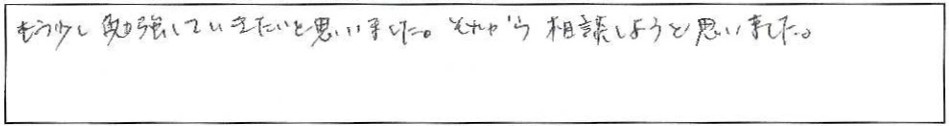 もう少し勉強していきたいと思いました。それから相談しようと思いました。